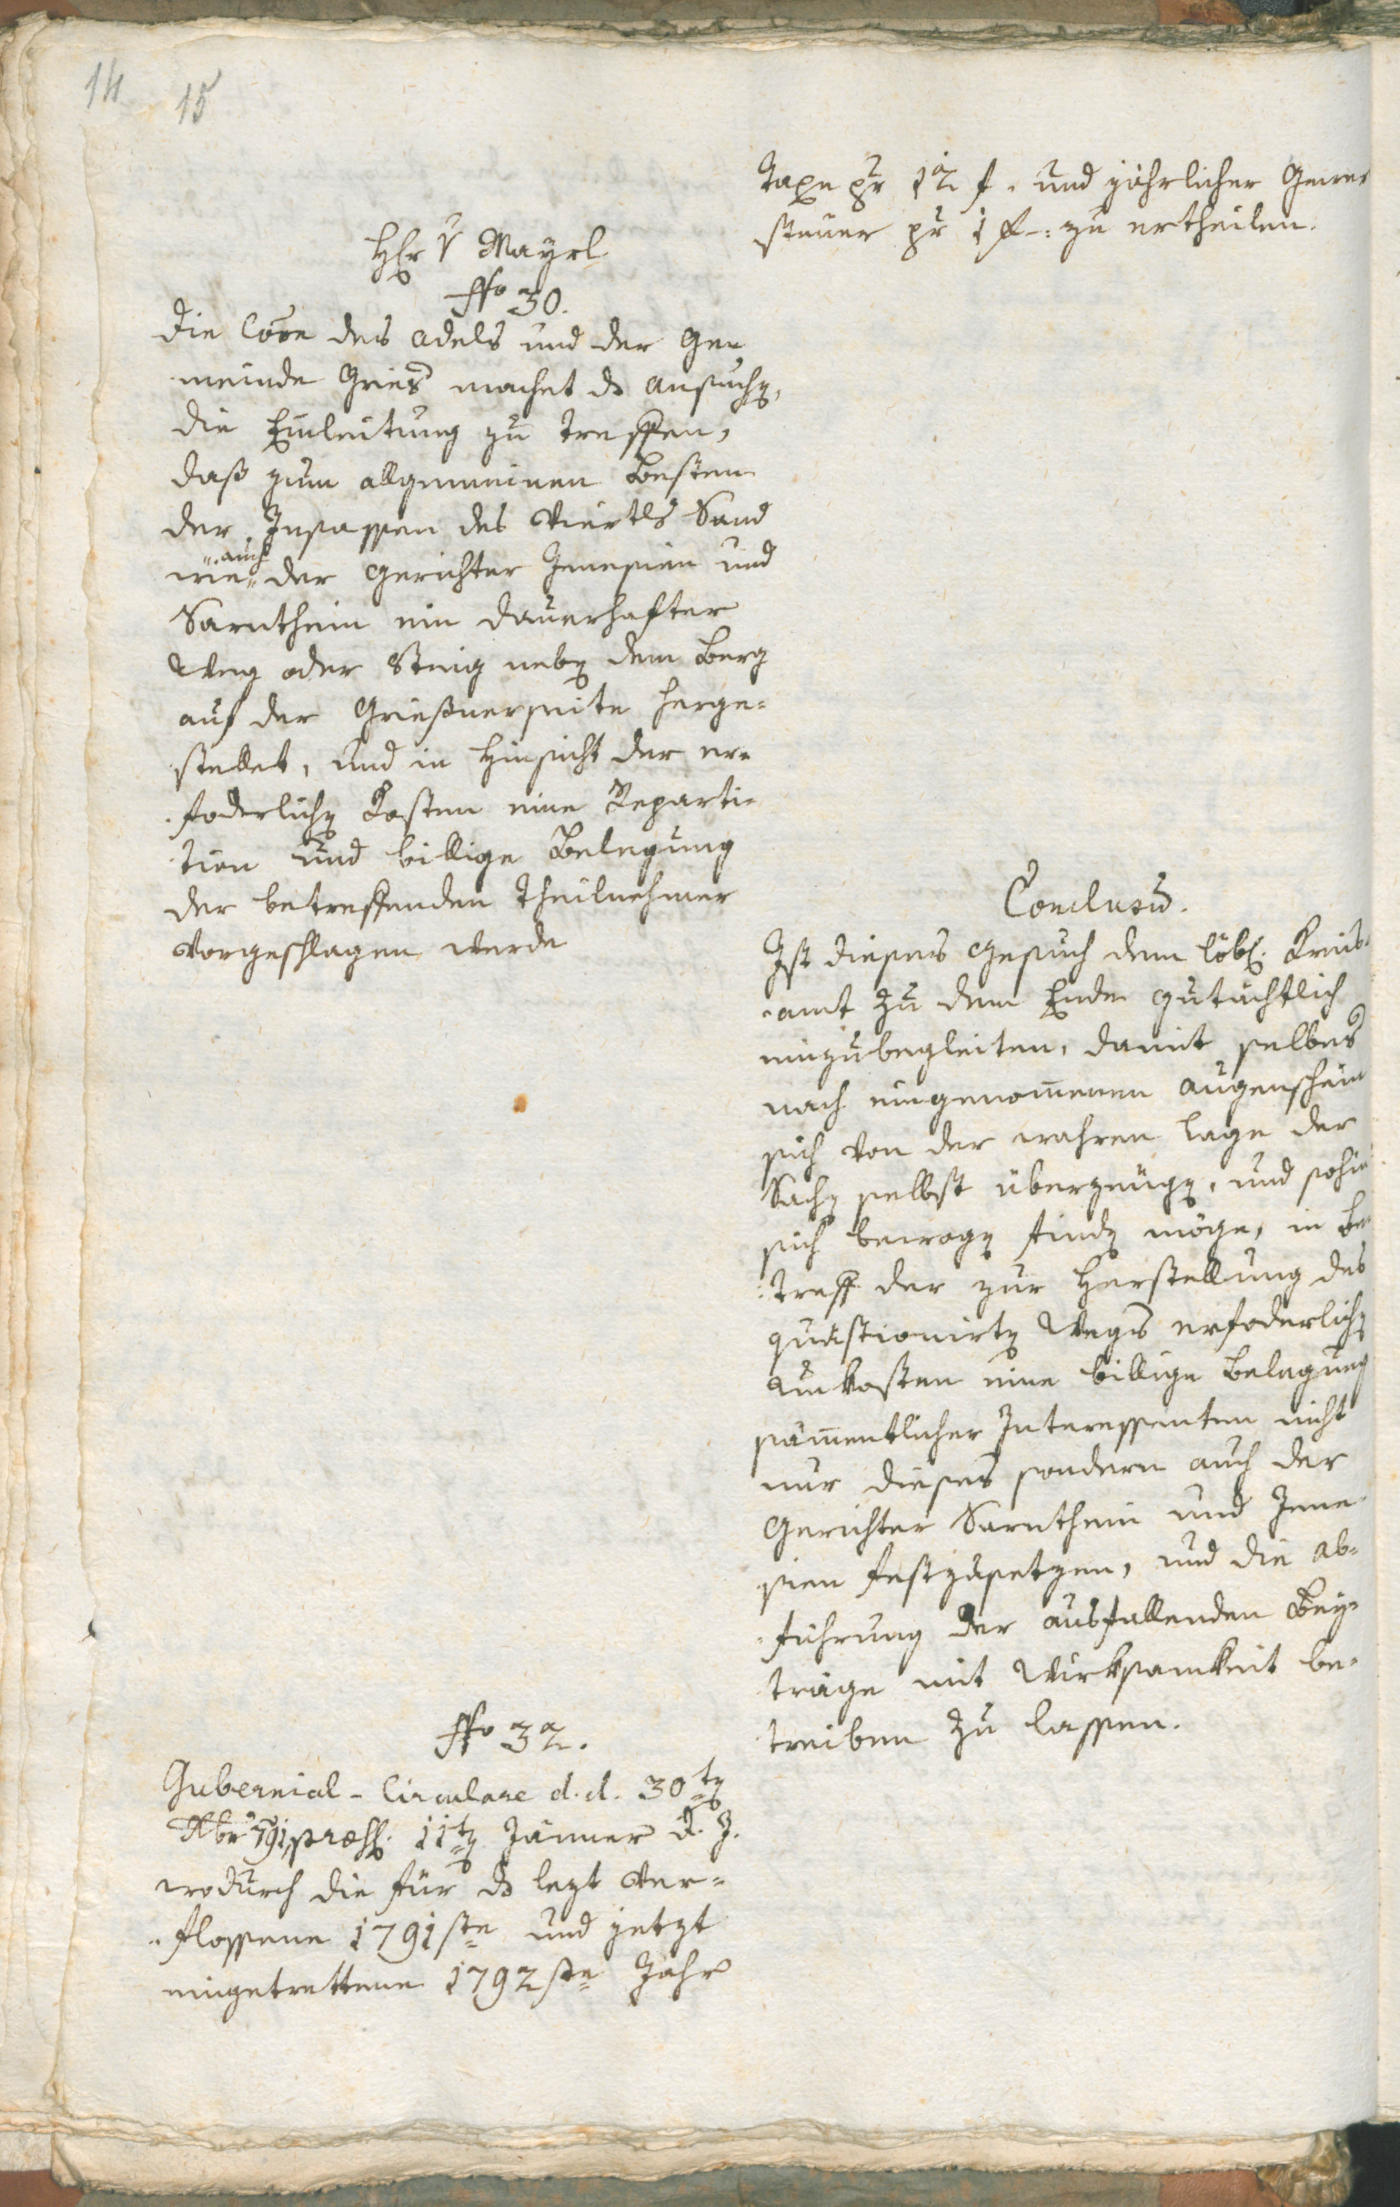 14 15
Taxe pr 12 f. und jährlicher Gewer
steuer pr 1 f -: zu ertheilen.
Hr v Mayrl
Nro 30.
Die Com̄ des Adels und der Ge-
meinde Gries machet ds Ansuchen,
die Einleitung zu treffen,
daß zum allgemeinen Besten
der Insassen des Viertls Sand
wie auch der Gerichter Jenesien und
Sarnthein ein dauerhafter
Weg oder Steig neben dem Berg
auf der Grießnerseite herge-
stellet, und in Hinsicht der er-
foderlichen Kosten eine Reparti-
tion und billige Belegung
der betreffenden Theilnehmer
vorgeschlagen werde
Conclusū.
Ist dieses Gesuch dem löbl. Kreis-
amt zu dem Ende gutächtlich
einzubegleiten, damit selbes
nach eingenom̄enen Augenschein
sich von der wahren Lage der
Sache selbst überzeugen, und sohin
sich bewogen finden möge, in Be-
treff der zur Herstellung des
quästionirten Wegs erfoderlichen
Unkosten eine billige Belegung
säm̄entlicher Interessenten nicht
nur dieses sondern auch der
Gerichter Sarnthein und Jene-
sien festzusetzen, und die Ab-
führung der ausfallenden Bey-
träge mit Wirksamkeit be-
treiben zu lassen.
Nro 32.
Gubernial-Circulare d. d. 30ten
Xbr 791, præs. 11ten Jänner d. J.
wodurch die für ds lezt ver-
flossene 1791ste und jetzt
eingetrettene 1792ste Jahr